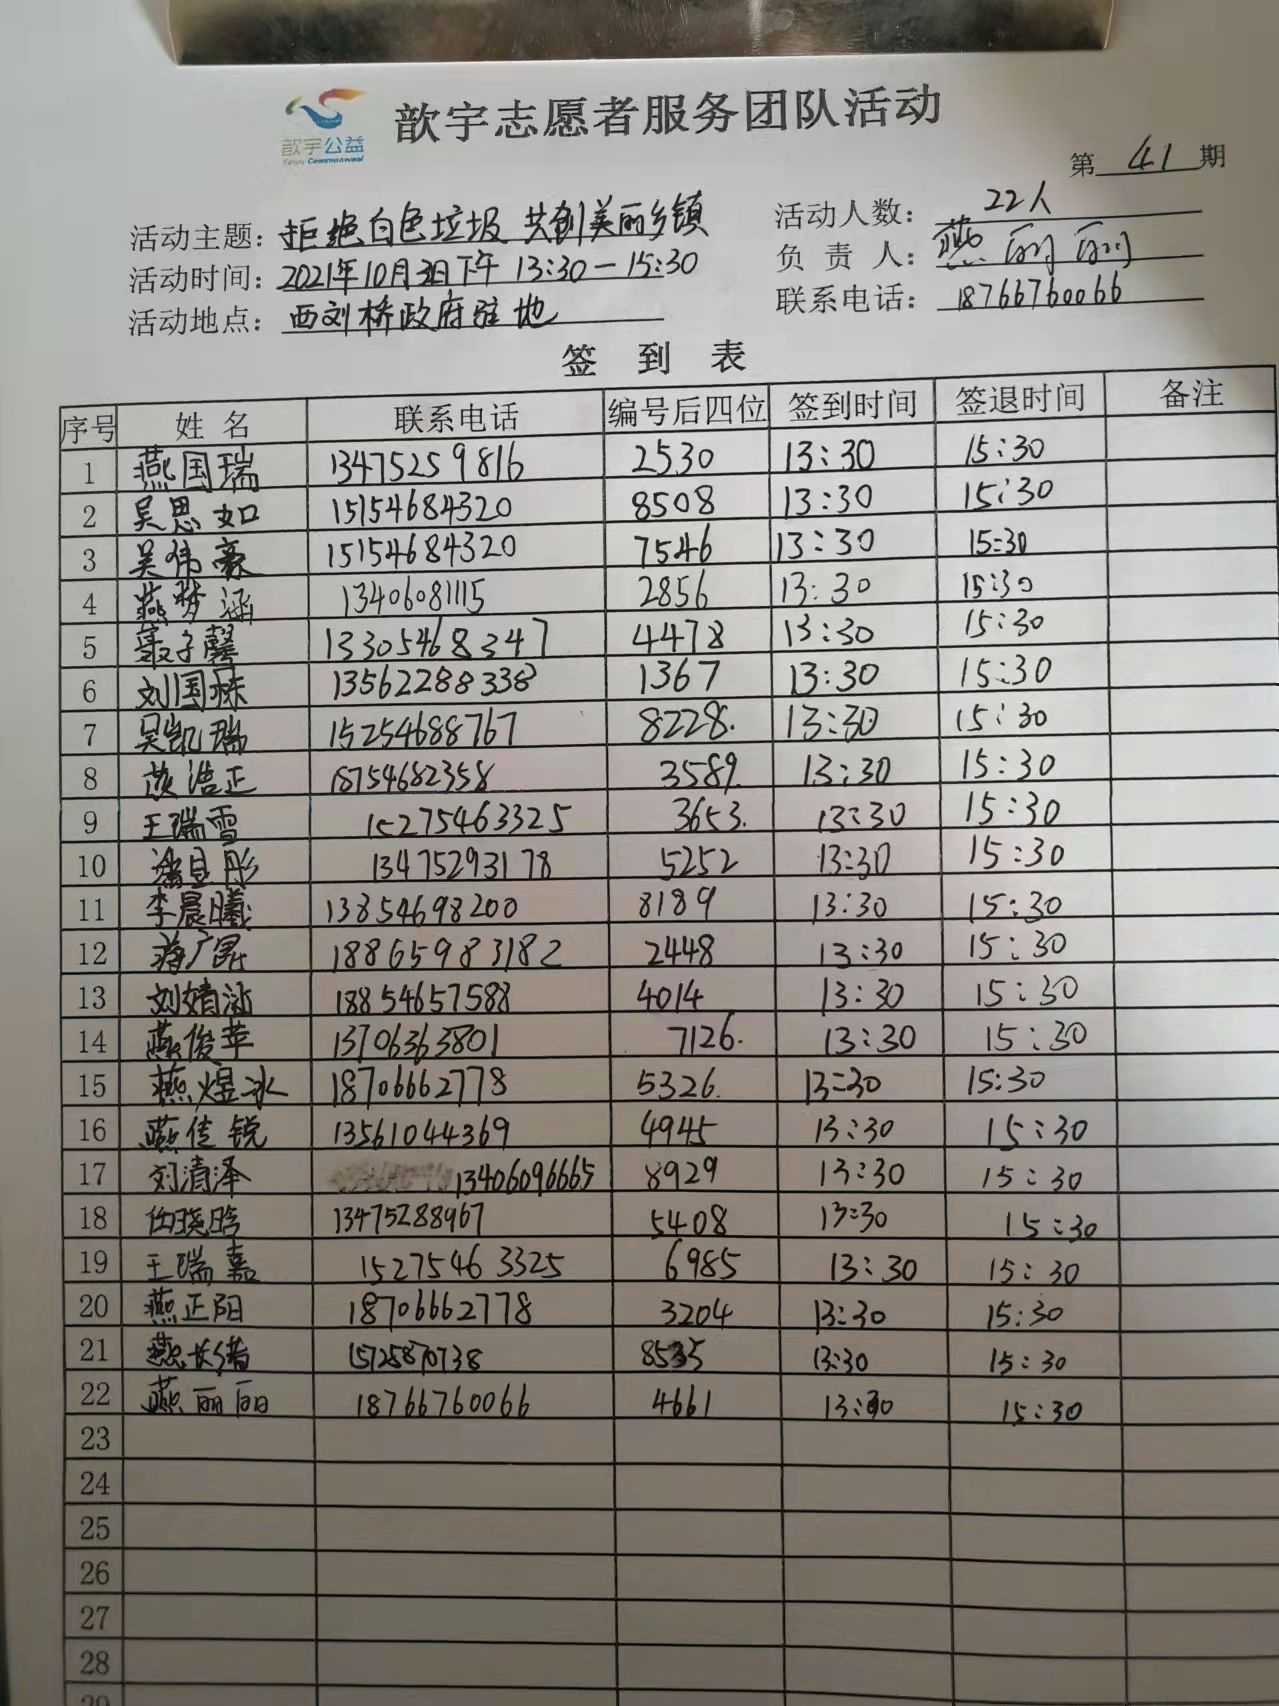 歆宇公益
Yinyu Commonweal
歆宇志愿者服务团队活动
第 41 期
活动主题：拒绝白色垃圾 共创美丽乡镇
活动人数：22人
活动时间：2021年10月3日下午 13:30—15:30
负责人：燕丽丽
活动地点：西刘桥政府驻地
联系电话：18766760066
签到表
序号 姓名 联系电话 编号后四位 签到时间 签退时间 备注
1 燕国瑞 13475259816 2530 13:30 15:30
2 吴思如 15154684320 8508 13:30 15:30
3 吴伟豪 15154684320 7546 13:30 15:30
4 燕梦涵 13406081115 2856 13:30 15:30
5 聂子馨 13305468347 4478 13:30 15:30
6 刘国栋 13562288338 1367 13:30 15:30
7 吴凯瑞 15254688767 8228. 13:30 15:30
8 浩正 18754682358 3589. 13:30 15:30
9 王瑞雪 15275463325 3653. 13:30 15:30
10 13475293178 5252 13:30 15:30
11 李晨曦 13854698200 8189 13:30 15:30
12 18865983182 2448 13:30 15:30
13 刘婧涵 18854657588 4014 13:30 15:30
14 燕俊苹 13706363801 7126. 13:30 15:30
15 燕煜冰 18706662778 5326. 13:30 15:30
16 燕佳锐 13561044369 4945 13:30 15:30
17 刘清泽 13406096665 8929 13:30 15:30
18 任晓晗 13475288967 5408 13:30 15:30
19 王瑞嘉 15275463325 6985 13:30 15:30
20 燕正阳 18706662778 3204 13:30 15:30
21 15725870738 8535 13:30 15:30
22 燕丽丽 18766760066 4661 13:30 15:30
23
24
25
26
27
28
29